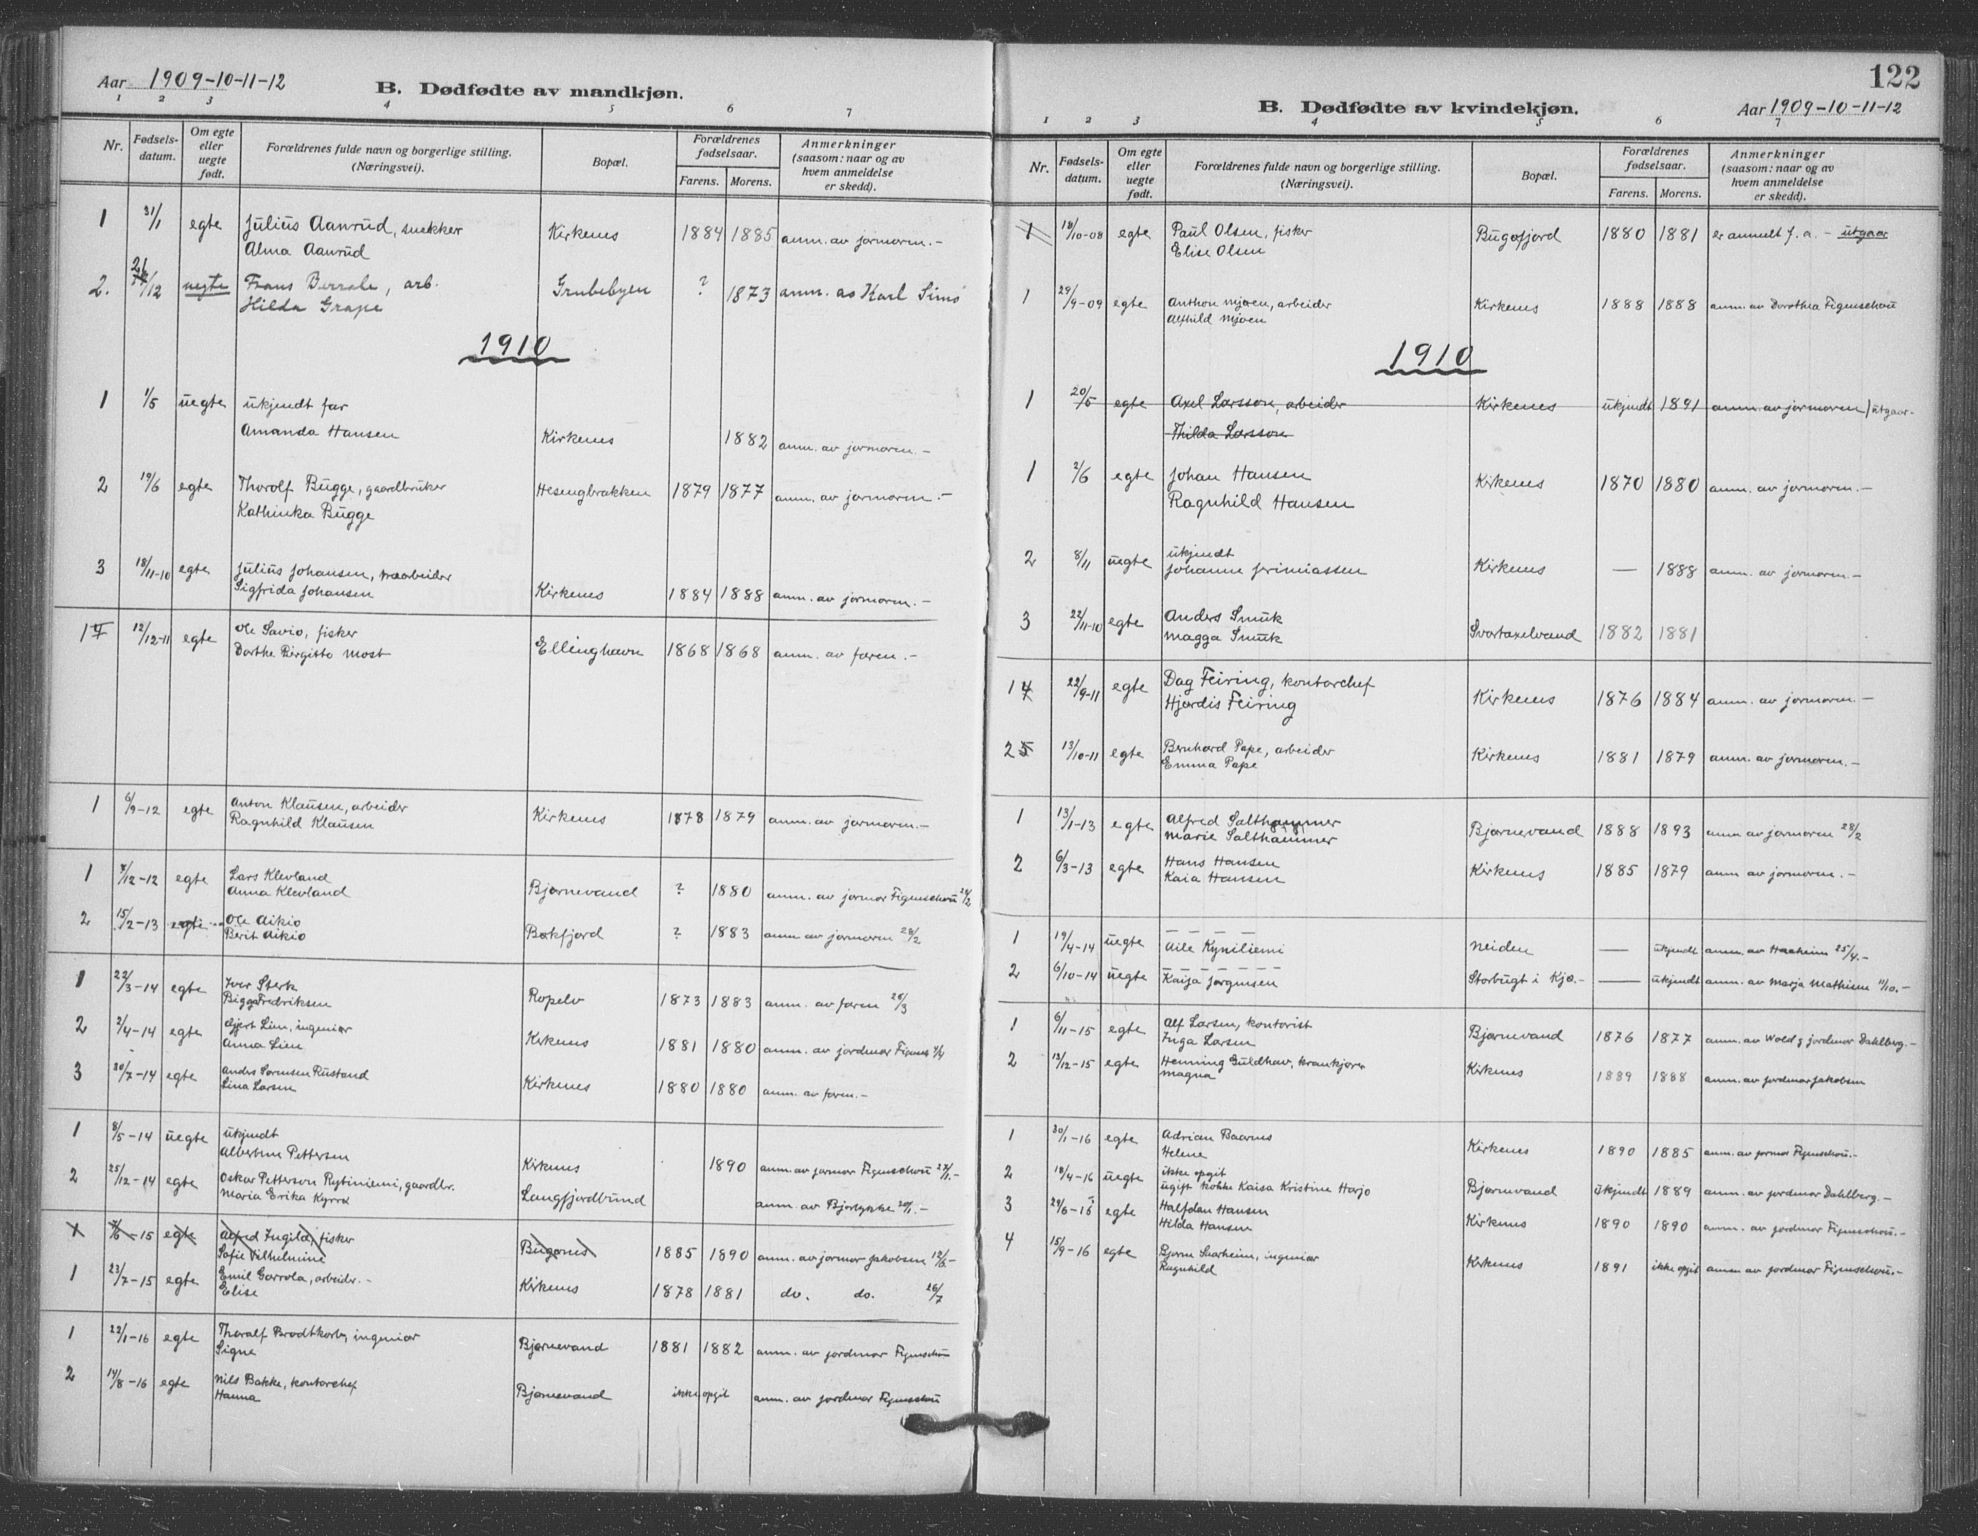 Aar 1909-10-11-12
B. Dødfødte av mandkjøn.
1 2 3 4 5 6 7
Nr. Fødsels-datum. Om egte eller uegte født. Forældrenes fulde navn og borgerlige stilling. (Næringsvei). Bopæl. Forældrenes fødselsaar. Farens. Morens. Anmerkninger (saasom: naar og av hvem anmeldelse er skedd).
1 31/1 egte Julius Aanrud, snekker Kirkenes 1884 1885 anm. av jormoren.-
Alma Aanrud
2. /12 uegte Frans, arb. Grubebyen ? 1873 anm. av Karl
Hilda Grape
1910
1 1/5 uegte ukjendt far
Amanda Hansen Kirkenes 1882 anm. av jormoren.-
2 19/6 egte Thorolf Bugge, gaardbruker Hesengbrakken 1879 1877 anm. av jormoren.-
Kathinka Bugge
3 18/11-10 egte Julius Johansen,
Sigfrida Johansen Kirkenes 1884 1888 anm. av jormoren.-
1 12/12-11 egte Ole Savio, fisker Ellinghavn 1868 1868 anm. av faren.-
Dorthe Birgitte Most
1 6/9-12 egte Anton Klausen, arbeider Kirkenes 1878 1879 anm. av jormoren.-
Ragnhild Klausen
1 7/12-12 egte Lars Klevland
Anna Klevland Bjørnevand ? 1880 anm. av jormor Figenschou 24/2
2 15/2-13 egte Ole Aikio
Berit Aikio Bøkfjord ? 1883 anm av jormoren 28/2
1 22/3-14 egte Iver Sterk
Bigga Fredriksen Ropelv 1873 1883 anm. av faren 26/3
2 2/4-14 egte Gjert Lien, ingeniør
Anna Lien Kirkenes 1881 1880 anm. av jordmor
3 20/7-14 egte Anders Sørensen Rustand
Lina Larsen Kirkenes 1880 1880 anm. av faren.-
1 8/5-14 uegte ukjendt
Albertine Pettersen Kirkenes 1890 anm. av jormor Figenschou
2 25/12-14 egte Oskar Petterson Rytiniemi, gaardbr.
Maria Erika Kyrrø Langfjordbund anm. av Bjørlykke
1 -15 egte Alfred Ingild, fisker
Sofie Vilhelmine Bugønes 1885 1890 anm. av jormor Jakobsen
1 23/7-15 egte Emil Garvola, arbeider.-
Elise Kirkenes 1878 1881 do. do. 26/7
1 22/1-16 egte Thoralf Brodtkorb, ingeniør
Signe Bjørnevand 1881 1882 anm. av jordmor Figenschou
2 14/8-16 egte Nils Bakke, kontorchef
Hanna Bjørnevand ikke opgit anm. av jordmor Figenschou
122
B. Dødfødte av kvindekjøn.
Aar 1909-10-11-12
1 2 3 4 5 6 7
Nr. Fødsels-datum. Om egte eller uegte født. Forældrenes fulde navn og borgerlige stilling. (Næringsvei). Bopæl. Forældrenes fødselsaar. Farens. Morens. Anmerkninger (saasom: naar og av hvem anmeldelse er skedd).
1 18/10-08 egte Paul Olsen, fisker Bugøfjord 1880 1881 er anmelt f. a. - utgaar
Elise Olsen
1 29/9-09 egte Anthon Mjøen, arbeider Kirkenes 1888 1888 anm. av Dorothea Figenschou
Alfhild Mjøen
1910
1 20/5 egte Axel Larsson, arbeider Kirkenes ukjendt 1891 anm. av jormoren/utgaar-
Thilda Larsson
1 2/6 egte Johan Hansen Kirkenes 1870 1880 anm. av jormoren.-
Ragnhild Hansen
2 8/11 uegte ukjendt
Johanne Jerimiassen Kirkenes — 1888 anm. av jormoren.-
3 22/11-10 egte Anders Smuk
Magga Smuk Svartaxelvand 1882 1881
1 4 22/9-11 egte Dag Feiring, kontorchef
Hjørdis Feiring Kirkenes 1876 1884 anm. av jormoren.-
2 5 13/10-11 egte Bernhard Pape, arbeider
Emma Pape Kirkenes 1881 1879 anm. av jormoren.-
1 13/1-13 egte Alfred Salthammer
Marie Salthammer Bjørnevand 1888 1893 anm av jormoren 28/2
2 6/3-13 egte Hans Hansen
Kaia Hansen Kirkenes 1885 1879 anm av jormoren.-
1 19/4-14 uegte — — — —
Aile Kyniliemi Neiden — ukjendt anm. av Hacheim 25/4.-
2 6/10-14 uegte — — — —
Kaisa Jørgensen Storbugt i Kjø.- — ukjendt anm. av Marja Mathisen 11/10.-
1 6/11-15 egte Alf Larsen, kontorist
Inga Larsen Bjørnevand 1876 1877 anm. av Wold g jordmor Dahlberg.-
2 12/12-15 egte Henning Guldhav, krankjører
Magna Kirkenes 1889 1888 anm. av jordmor Jakobsen
1 30/1-16 egte Adrian Baarnes
Helene Kirkenes 1890 1885 anm. av jormor Figenschou.-
2 18/4-16 uegte ikke opgit
ugift kokke Kaisa Kristine Harjo Bjørnevand ukjendt 1889 anm. av jordmor Dahlberg.-
3 29/6-16 egte Halfdan Hansen
Hilda Hansen Kirkenes 1890 1890 anm. av jordmor Figenschou.-
4 15/9-16 egte Bjarne Saxheim, ingeniør
Ragnhild Kirkenes 1891 ikke opgit anm av jordmor Figenschou.-